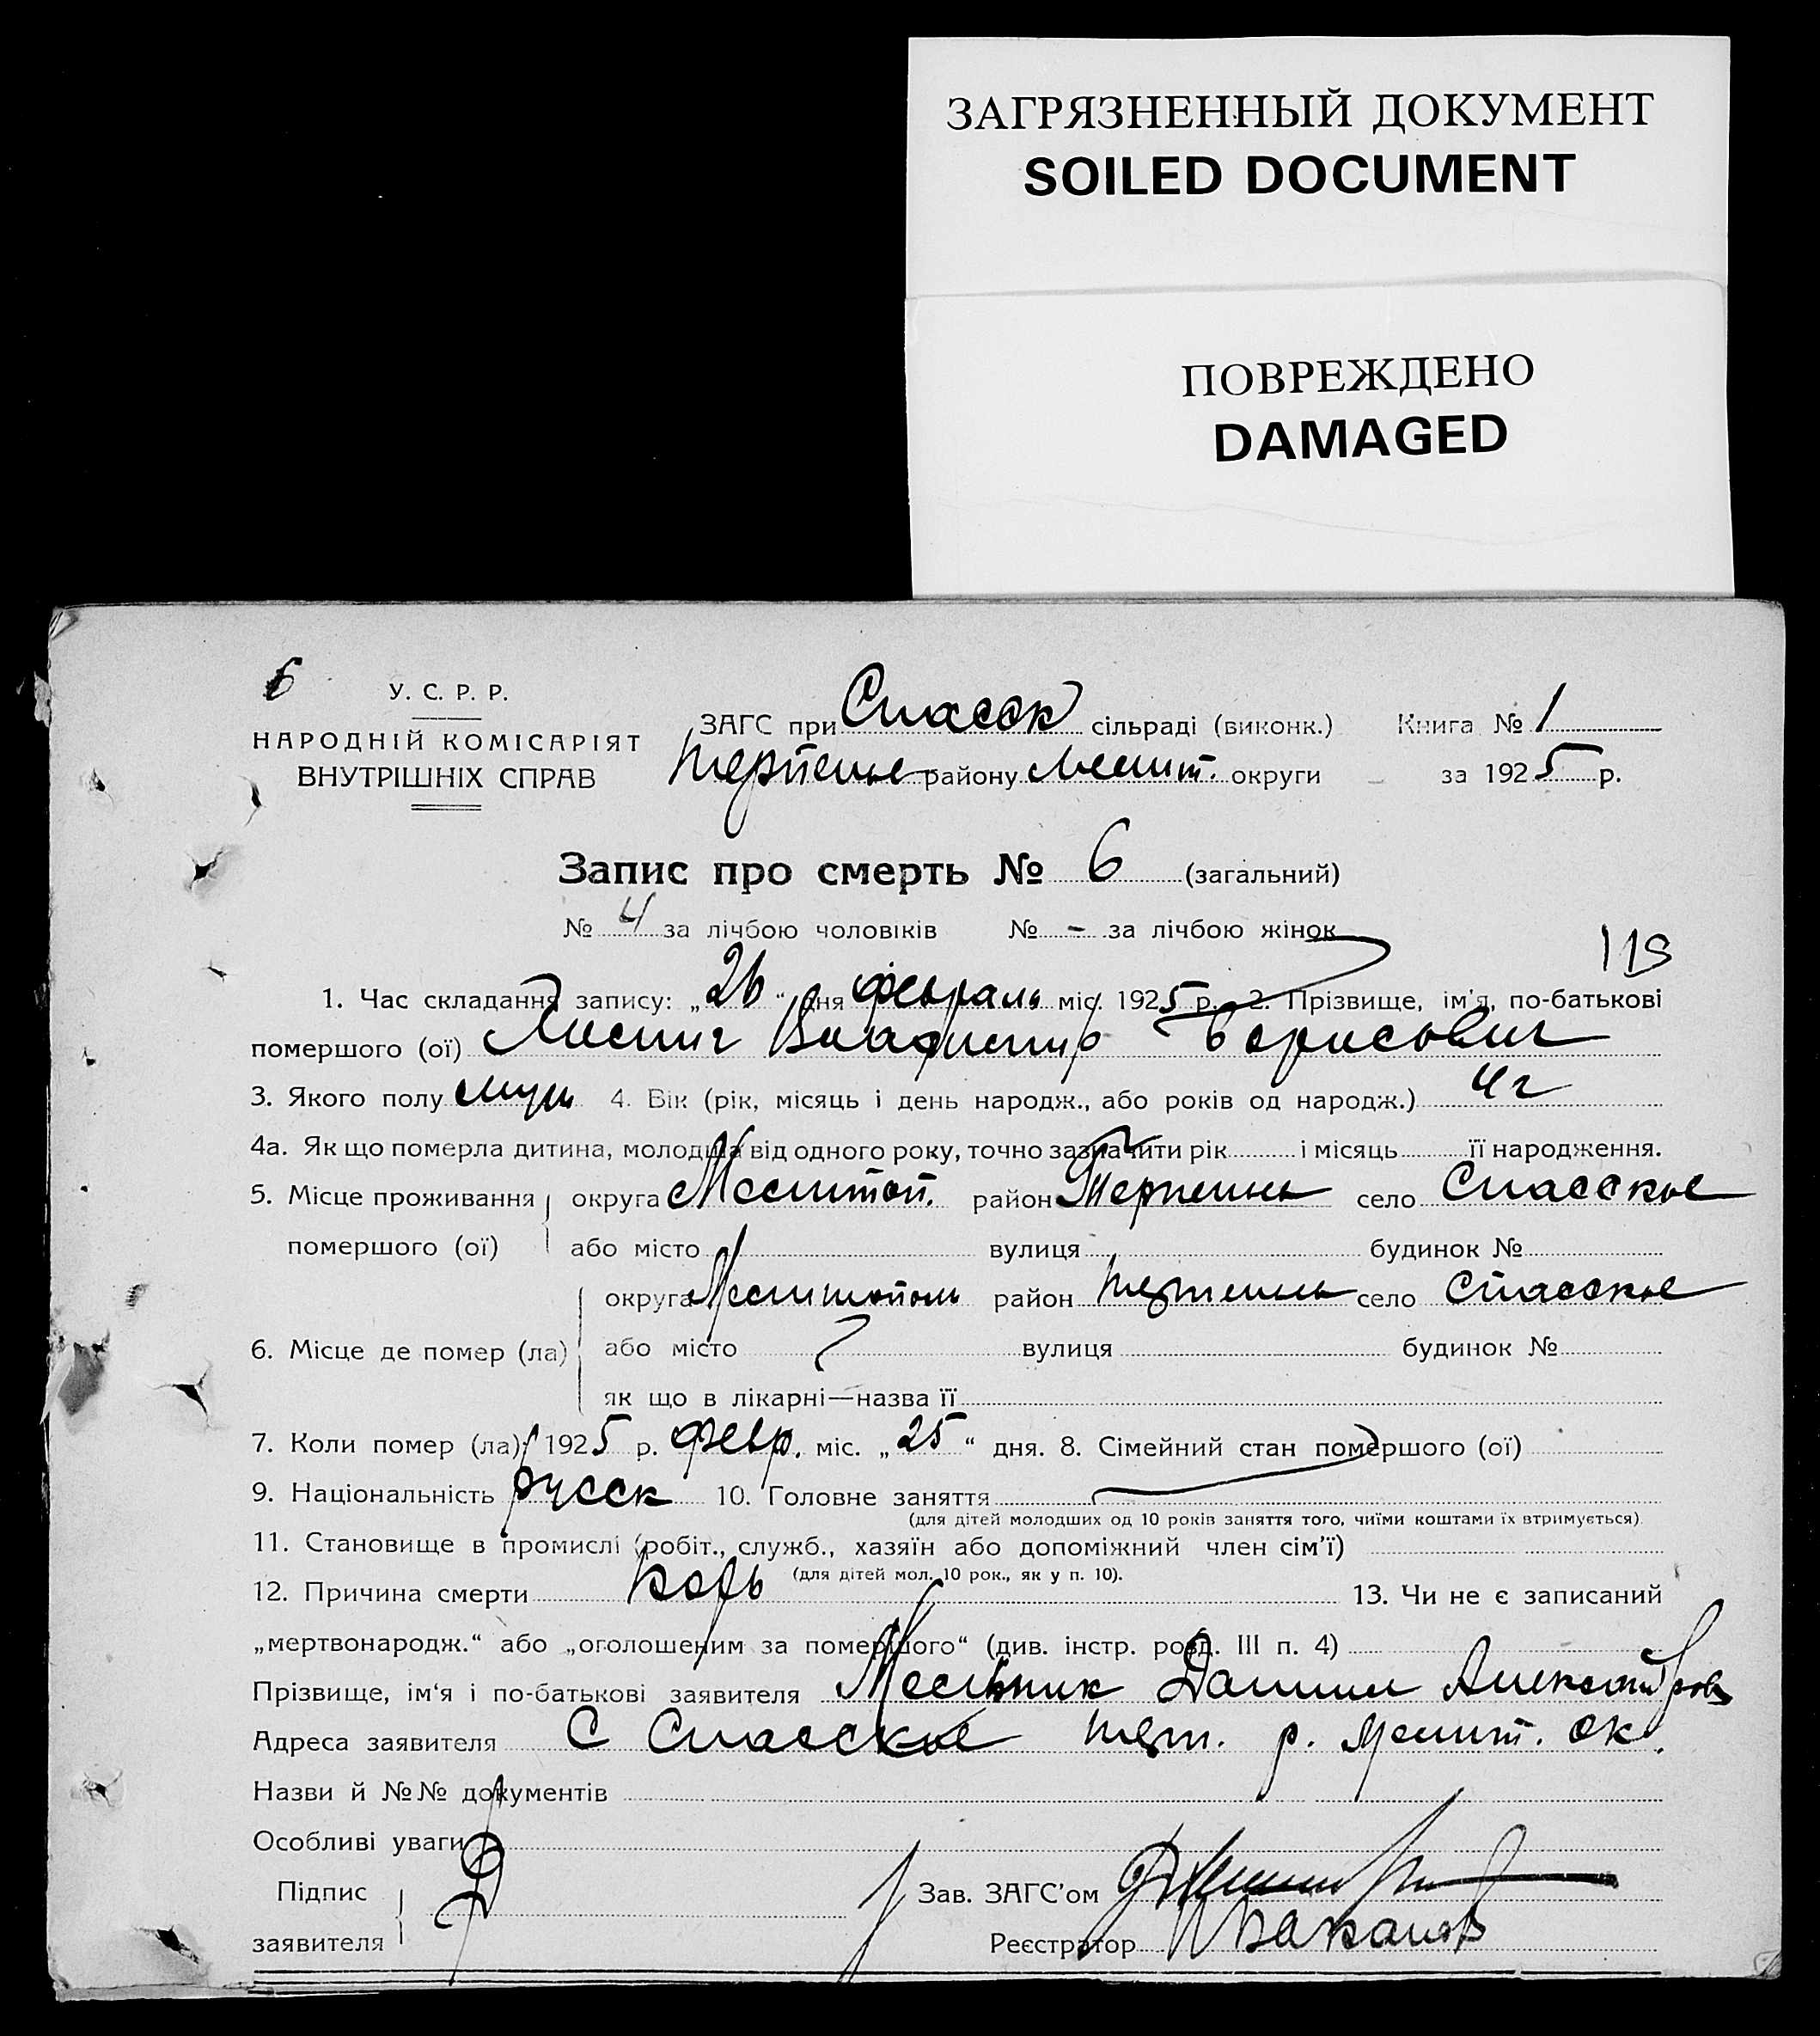 ЗАГРЯЗНЕННЫЙ ДОКУМЕНТ
SOILED DOCUMENT
ПОВРЕЖДЕНО
DAMAGED
6
У. С. Р. Р.
НАРОДНІЙ КОМІСАРІЯТ
ВНУТРІШНІХ СПРАВ
ЗАГС при Спасск сільраді (виконк.) Книга № 1
району Мелит. округи за 1925 р.
Запис про смерть № 6 (загальний)
№ 4 за лічбою чоловіків № - за лічбою жінок
119
1. Час складання запису: „26“ дня февраль міс. 1925 р. 2. Прізвище, ім'я, по-батькові
помершого (ої) Владимир Борисович
3. Якого полу муж 4. Вік (рік, місяць і день народж., або років од народж.) 4 г
4а. Як що померла дитина, молодша від одного року, точно зазначити рік і місяць її народження.
5. Місце проживання округа Мелитоп. район Терпенье село Спасское
помершого (ої) або місто вулиця будинок №
округа Мелитополь район Терпенье село Спасское
6. Місце де помер (ла) або місто вулиця будинок №
як що в лікарні—назва її
7. Коли помер (ла): 1925 р. февр. міс. „25“ дня. 8. Сімейний стан помершого (ої)
9. Національність русск 10. Головне заняття
(для дітей молодших од 10 років заняття того, чиїми коштами їх втримується)
11. Становище в промислі (робіт., служб., хазяїн або допоміжний член сім'ї)
(для дітей мол. 10 рок., як у п. 10).
12. Причина смерти Корь 13. Чи не є записаний
„мертвонародж.“ або „оголошеним за помершого“ (див. інстр. розд. III п. 4)
Прізвище, ім'я і по-батькові заявителя Мельник Даниил Александров
Адреса заявителя С Спасское Терп. р. Мелит. ок.
Назви й №№ документів
Особливі уваги
Підпис
заявителя
Зав. ЗАГС'ом
Реєстратор